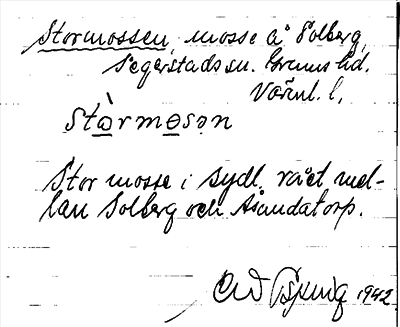 Stormossen, mosse å Solberg,
Segerstads sn. Grums hd.
Värml. l.
stòrmosən
Stor mosse i sydl. rået mel-
lan Solberg och Åsundatorp.
1942